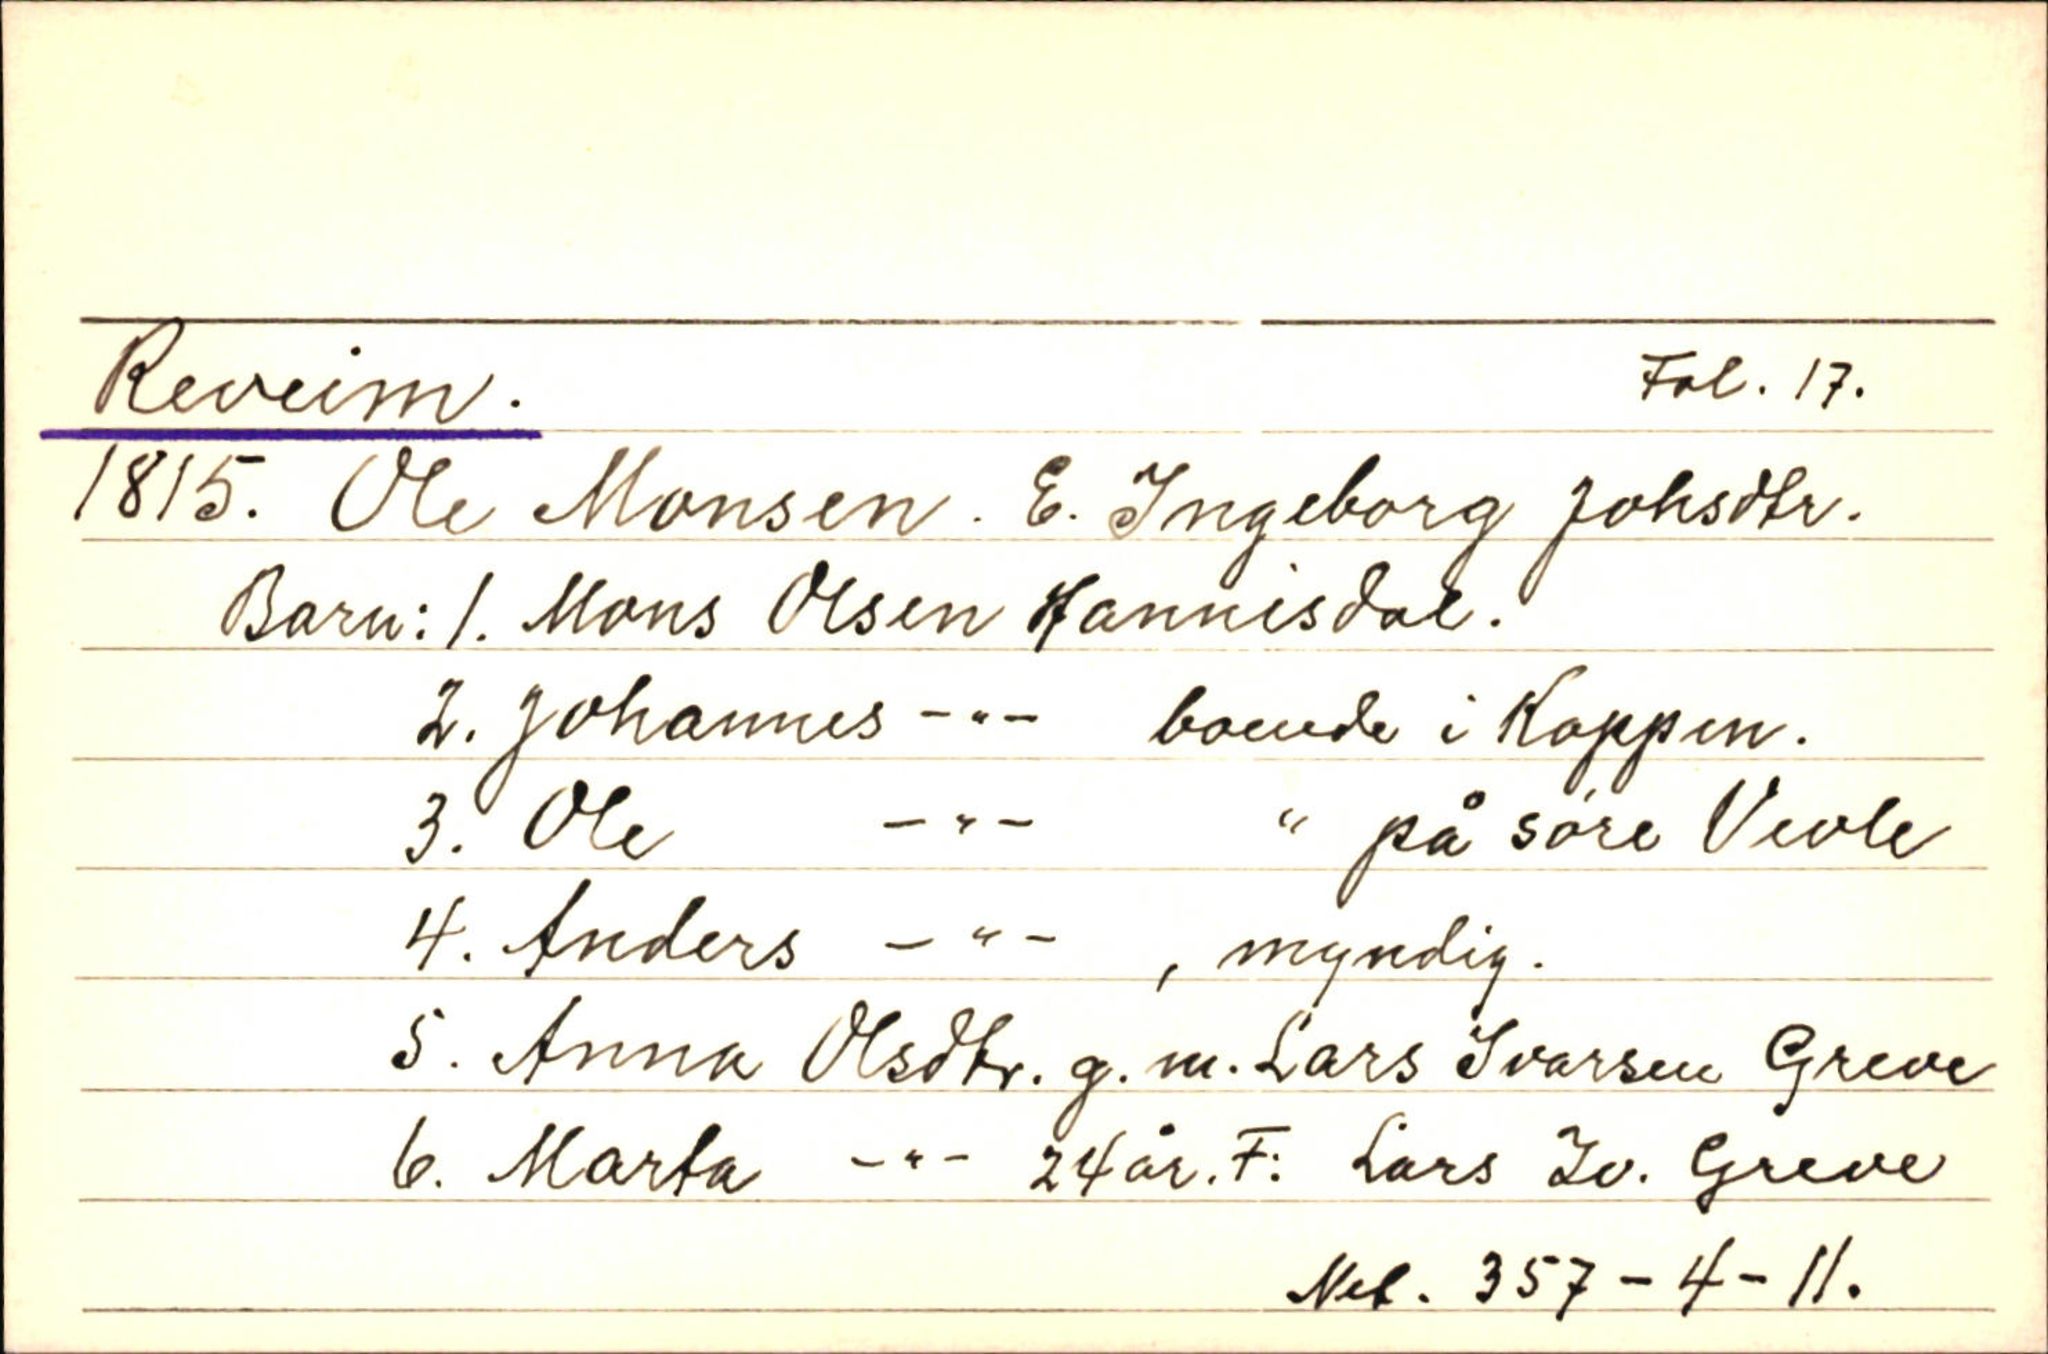 Reveim. Fol. 17.
1815. Ole Monsen. E. Ingeborg Johsdtr.
Barn: 1. Mons Olsen Hannisdal.
2. Johannes -"- boende i Koppen.
3. Ole -"- " på söre Vevle
4. Anders -"- , myndig.
5. Anna Olsdtr. g. m. Lars Ivarsen Greve
6. Marta -"- 24 år. F: Lars Iv. Greve
Net. 357-4-11.